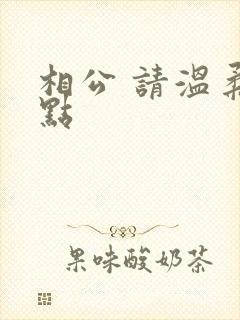 相公 請溫柔
點
果味酸奶茶